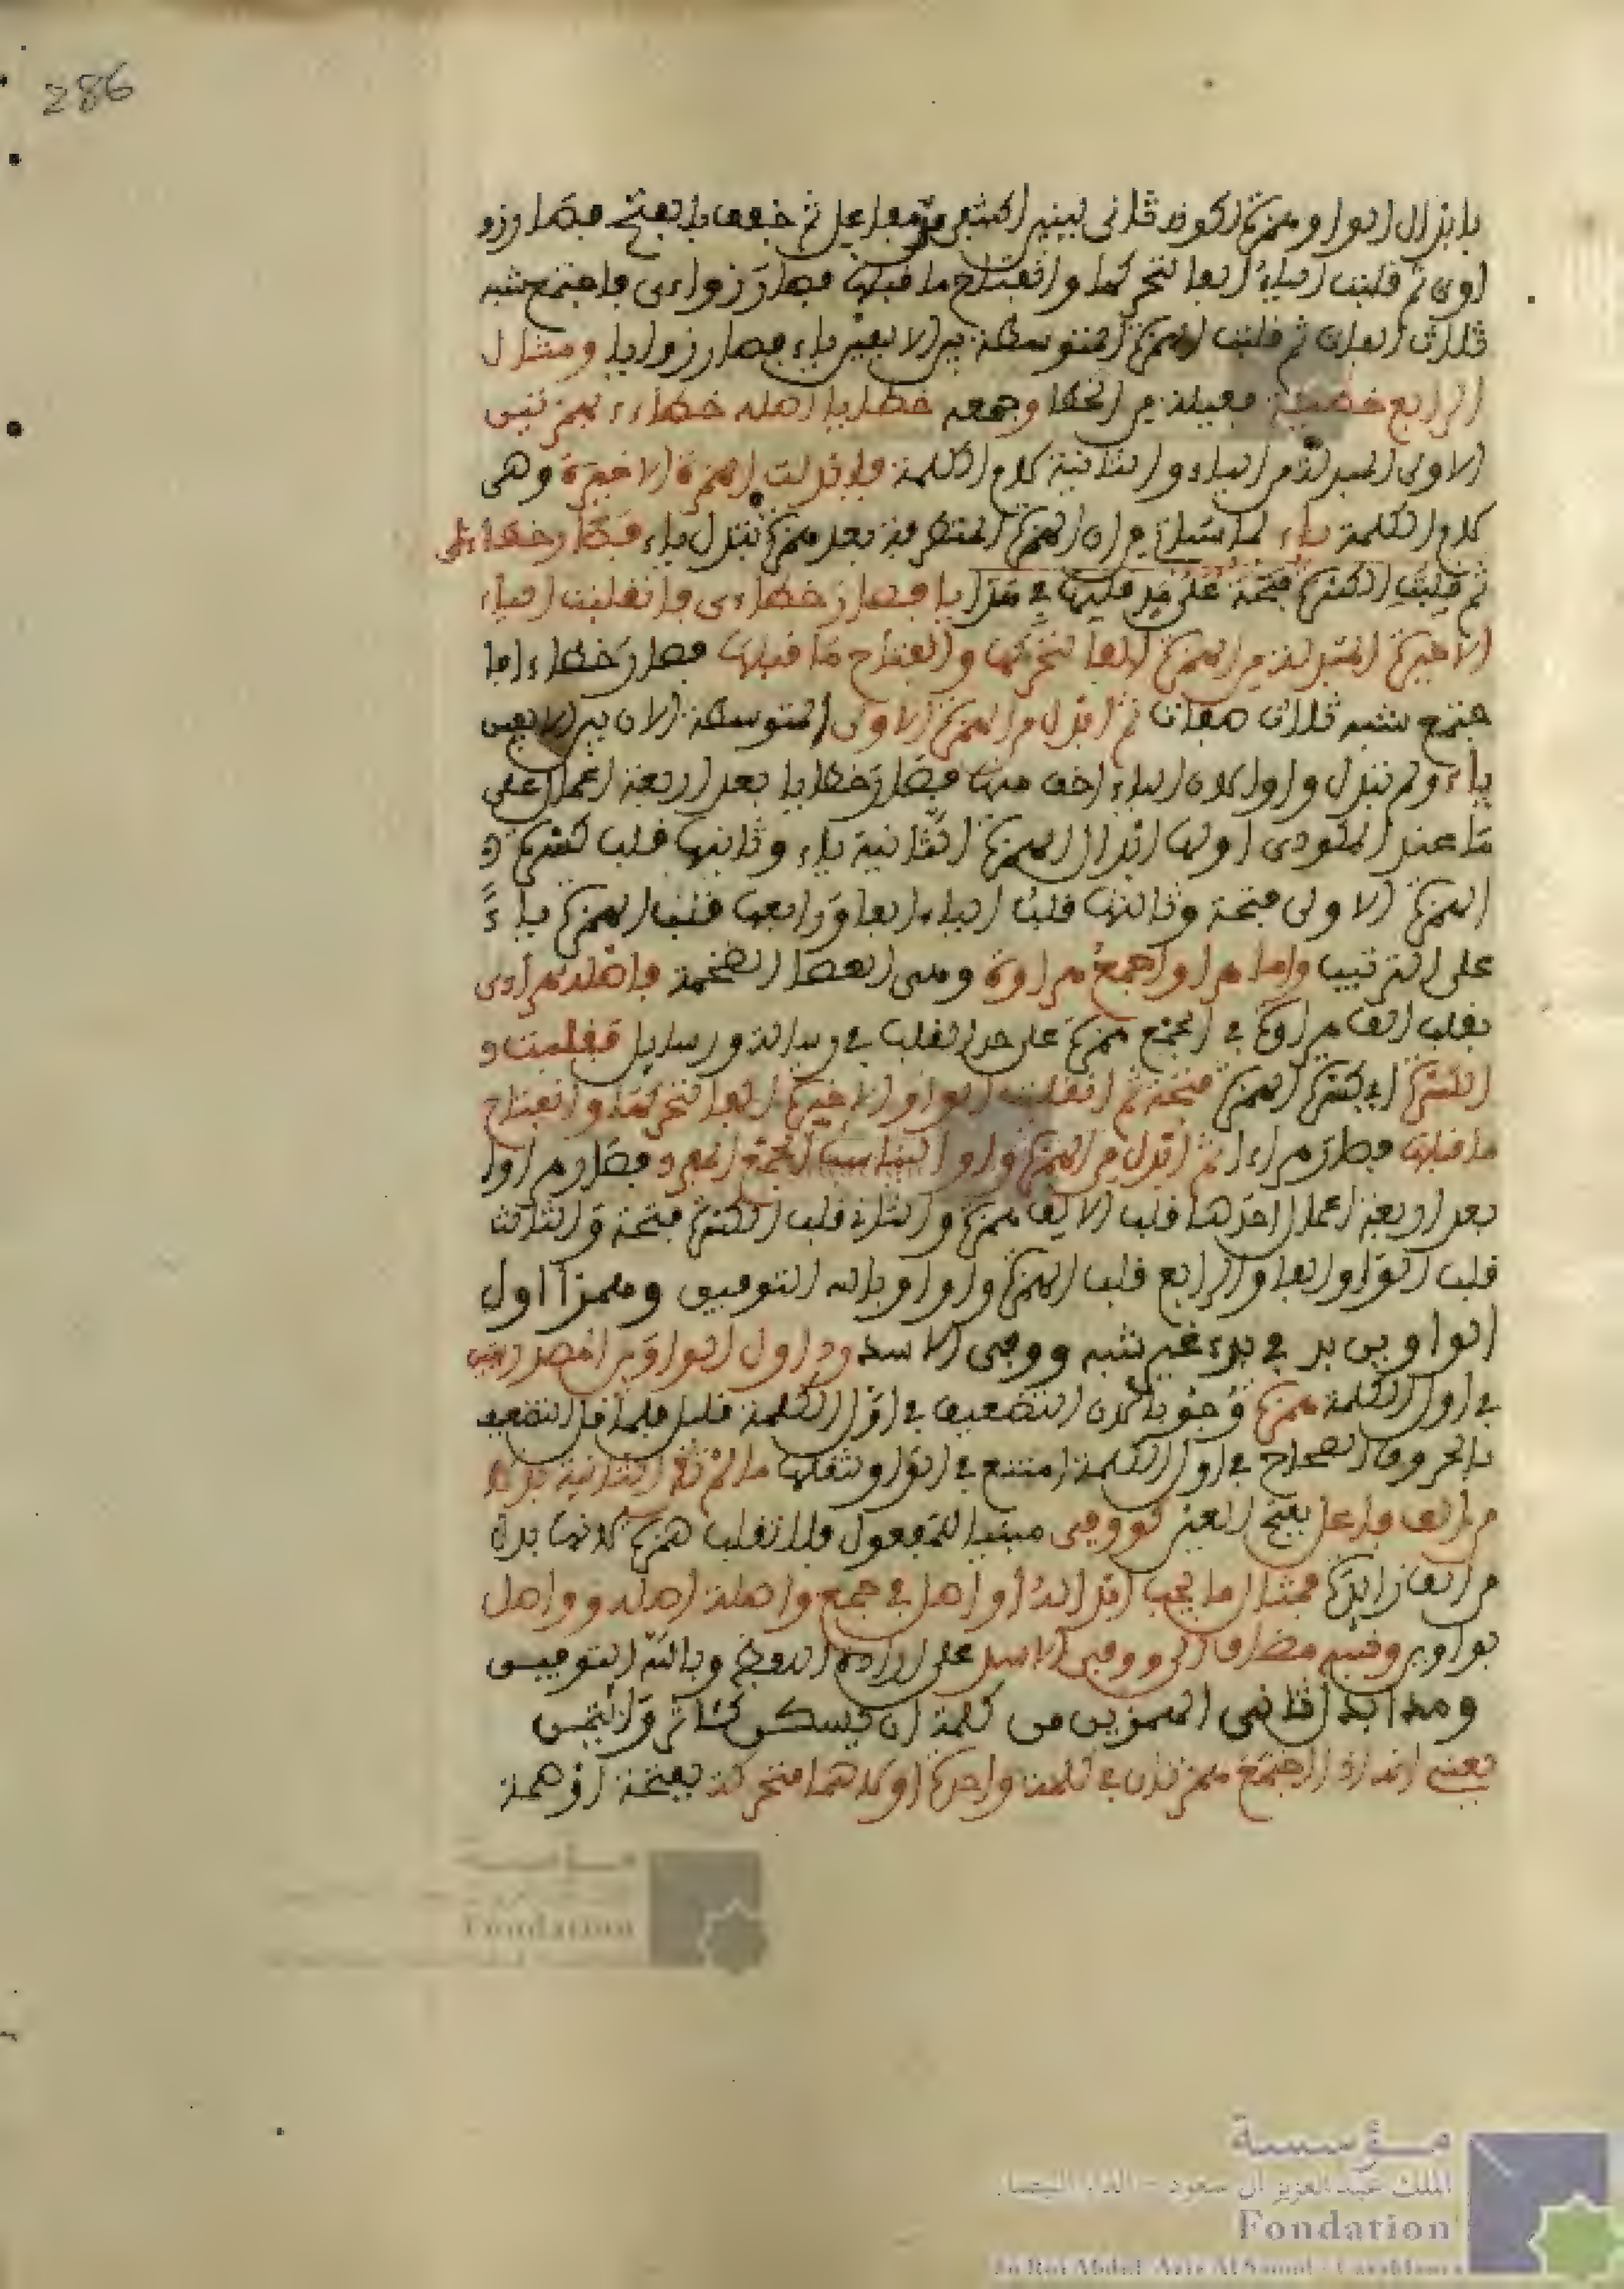 286
بابدال الواو همزة لكونه ثاني لينين اكتنفى مفاعل ثم خفف بالفتح فصار زو
اءى ثم قلبت الياء الفا لتحركها وانفتاح ما قبلها فصار زواءى فاجتمع شبه
ثلاث الفات ثم قلبت الهمزة المتوسطة بين الالفين ياء فصار زوايا ومثال
الرابع خطيئة فعيلة من الخطا وجمعه خطايا اصله خطاءء بهمزتين
الاولى المبدلة من الياء والثانية لام الكلمة فابدلت الهمزة الاخيرة وهى
لام الكلمة ياء لما سيأتي من ان الهمزة المتطرفة بعد همزة تبدل ياء فصار خطاءى
ثم قلبت الكسرة فتحة على حد قلبها في هدايا فصار خطاءى فانقلبت الياء
الاخيرة المبدلة من الهمزة الفا لتحركها وانفتاح ما قبلها فصار خطاءا فا
جتمع شبه ثلاث الفات ثم ابدل من الهمزة الاولى المتوسطة الان بين الالفين
ياء ولم تبدل واوا لان الياء اخف منها فصار خطايا بعد اربعة اعمال على
ما عند المكودى اولها ابدال الهمزة الثانية ياء وثانيها قلب كسرة
الهمزة الاولى فتحة وثالثها قلب الياء الفا ورابعها قلب الهمزة ياء
على الترتيب واما هراوا جمع هراوة وهى العصا الضخمة فاصله هراءى
بقلب الف هراوة في الجمع همزة على حد القلب في رسالة ورسايل فقلبت
الكسرة اي كسرة الهمزة فتحة ثم انقلبت الواو الاخيرة الفا لتحركها وانفتاح
ما قبلها فصار هراءا ثم ابدل من الهمزة واو ليناسب الجمع المفرد فصار هراوا
بعد اربعة اعمال احدها قلب الالف همزة والثاني قلب الكسرة فتحة والثالث
قلب الواو الفا والرابع قلب الهمزة واوا وبالله التوفيق وهمزا اول
الواوين رد في بدء غير شبه ووفي الاشد ورد اول الواوين
في اول الكلمة همزة وجوبا لان التضعيف في اول الكلمة قليل فلما قل التضعيف
بالحروف الصحاح في اول الكلمة امتنع في الواو لثقلها ما لم تك الثانية بدلا
من الف فاعل بفتح العين كووفي مبنيا للمفعول فلا تقلب همزة لانها بدل
من الف زايدة فمثال ما يجب ابداله أواصل في جمع واصلة اصله وواصل
بواوين وشبه مضاف الى ووفي الاشد على ارادة وبالله التوفيق
ومدا ابدل ثاني الهمزين من كلمة ان يسكن كئاثر وائتمن
يعني انه اذا اجتمع همزتان في كلمة واحدة اولاهما متحركة بفتحة او ضمة
مؤسسة
Fondation
مؤسسة
الملك عبد العزيز آل سعود - الدار البيضاء
Fondation
du Roi Abdul-Aziz Al Saoud - Casablanca